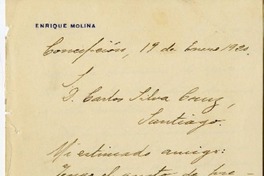 ENRIQUE MOLINA
Concepción, 19 de Enero 1920.
S.
D. Carlos Silva Cruz,
Santiago.
Mi estimado amigo:
Tengo el gusto de pre-